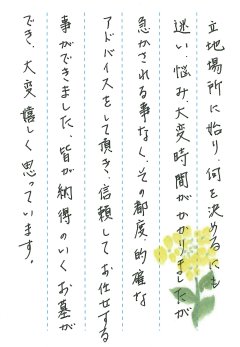 立地場所に始り、何を決めるにも
迷い悩み、大変時間がかかりましたが
急かされる事なく、その都度、的確な
アドバイスをして頂き、信頼してお任せする
事ができました、皆が納得のいくお墓が
でき、大変嬉しく思っています。